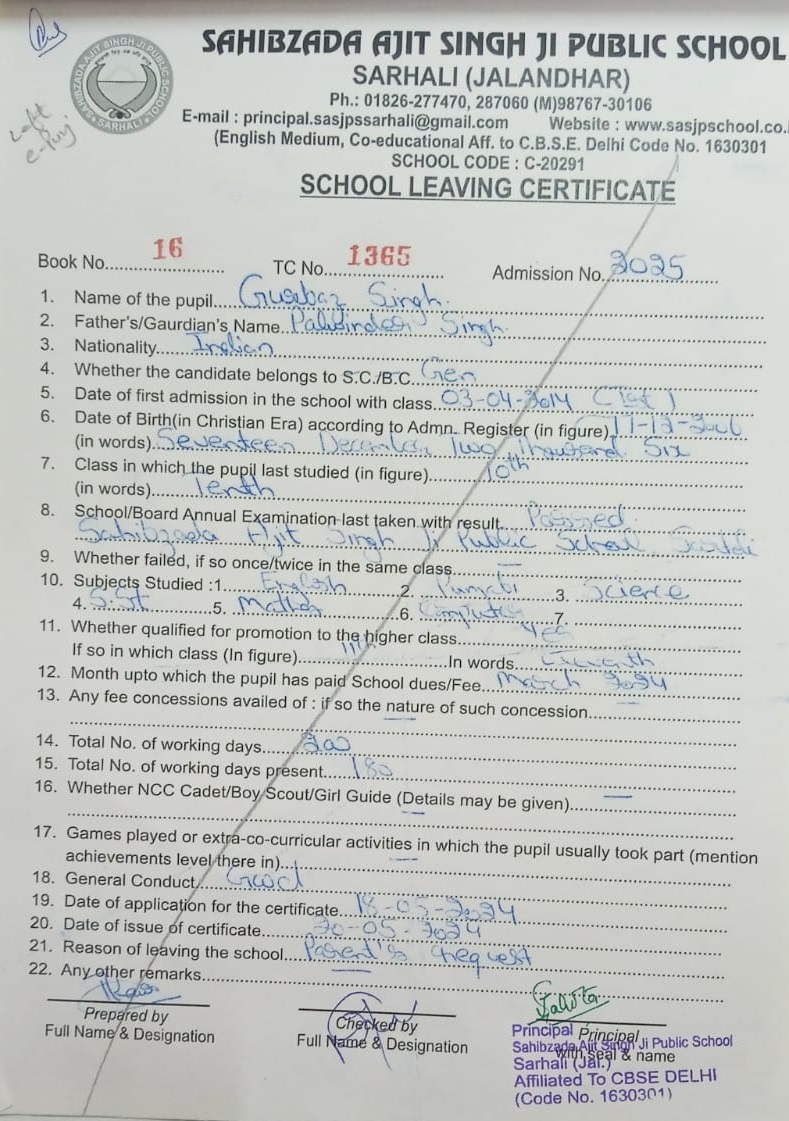 SAHIBZADA AJIT SINGH JI PUBLIC SCHOOL
SARHALI (JALANDHAR)
Ph.: 01826-277470, 287060 (M)98767-30106
E-mail : principal.sasjpssarhali@gmail.com Website : www.sasjpschool.co.
(English Medium, Co-educational Aff. to C.B.S.E. Delhi Code No. 1630301
SCHOOL CODE : C-20291
SCHOOL LEAVING CERTIFICATE
SAHIBZADA AJIT SINGH JI PUBLIC SCHOOL
SARHALI
Left
Book No. 16 TC No. 1365 Admission No. 2025
1. Name of the pupil Gurbaz Singh
2. Father's/Gaurdian's Name Palwinder Singh
3. Nationality Indian
4. Whether the candidate belongs to S.C./B.C. Gen
5. Date of first admission in the school with class 03-04-2014 (1st)
6. Date of Birth(in Christian Era) according to Admn. Register (in figure) 17-12-2006
(in words) Seventeen December Two Thousand Six
7. Class in which the pupil last studied (in figure) 10th
(in words) Tenth
8. School/Board Annual Examination last taken with result Passed
Sahibzada Ajit Singh Ji Public School
9. Whether failed, if so once/twice in the same class —
10. Subjects Studied :1. English 2. Punjabi 3. Science
4. S.St 5. Maths 6. Computer 7.
11. Whether qualified for promotion to the higher class Yes
If so in which class (In figure) 11th In words
12. Month upto which the pupil has paid School dues/Fee March 2024
13. Any fee concessions availed of : if so the nature of such concession —
14. Total No. of working days 200
15. Total No. of working days present 180
16. Whether NCC Cadet/Boy Scout/Girl Guide (Details may be given) —
17. Games played or extra-co-curricular activities in which the pupil usually took part (mention
achievements level there in) —
18. General Conduct Good
19. Date of application for the certificate 18-05-2024
20. Date of issue of certificate 20-05-2024
21. Reason of leaving the school Parent's request
22. Any other remarks —
Prepared by
Full Name & Designation
Checked by
Full Name & Designation
Principal
with seal & name
Principal
Sahibzada Ajit Singh Ji Public School
Sarhali (Jal.)
Affiliated To CBSE DELHI
(Code No. 1630301)